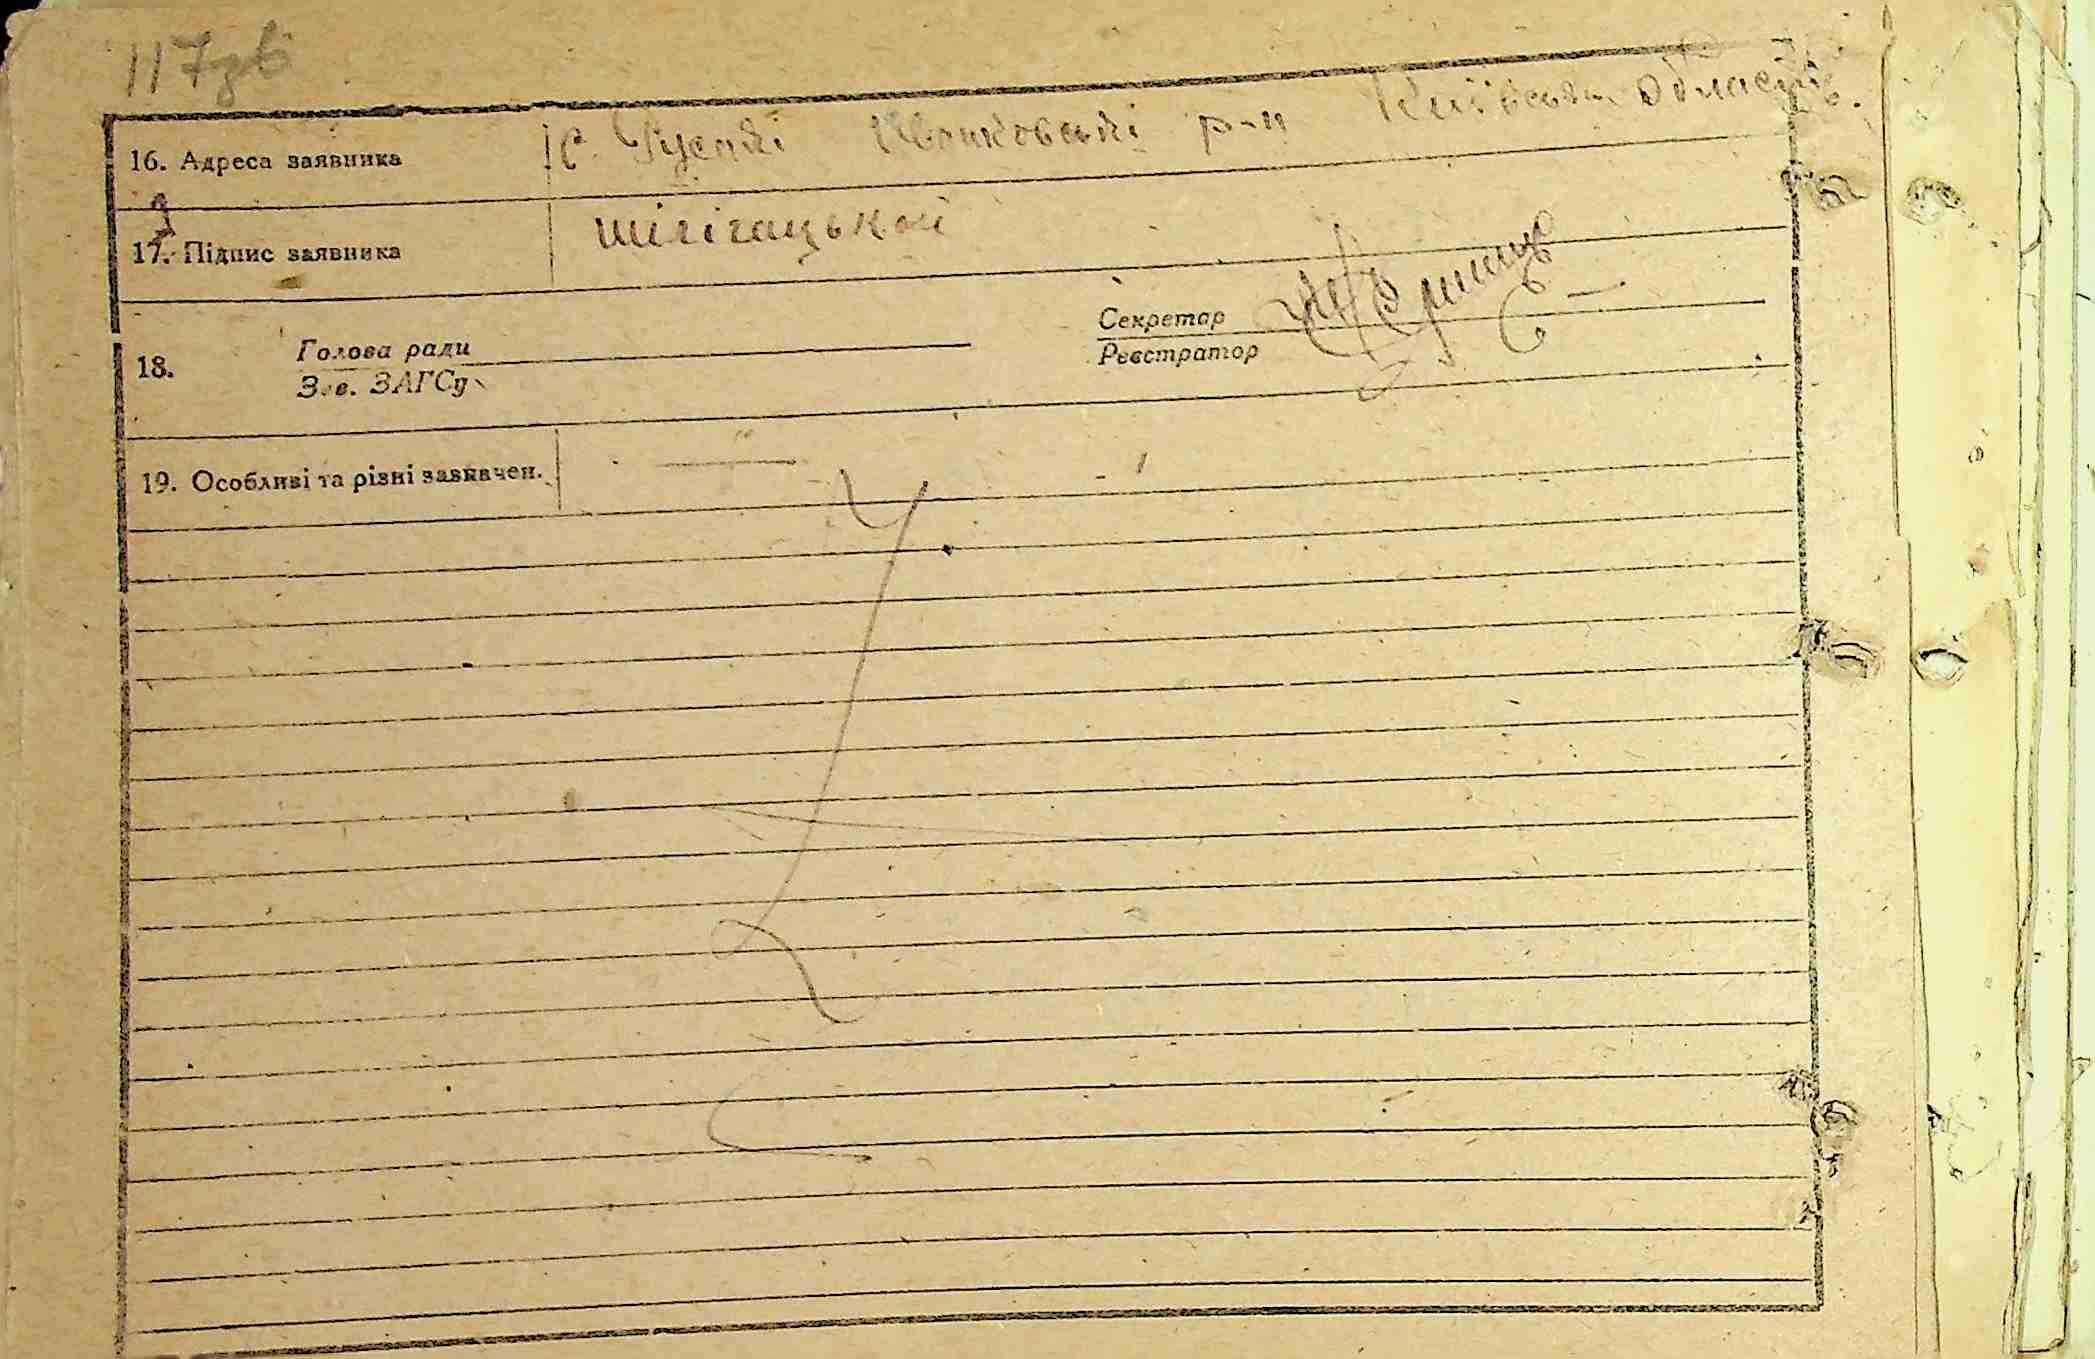 117зв
16. Адреса заявника с. Гусаки Іванковский р-н Київська області.
17. Підпис заявника
Секретар
18. Голова ради Реєстратор
Зав. ЗАГСу
19. Особливі та різні зазначен.